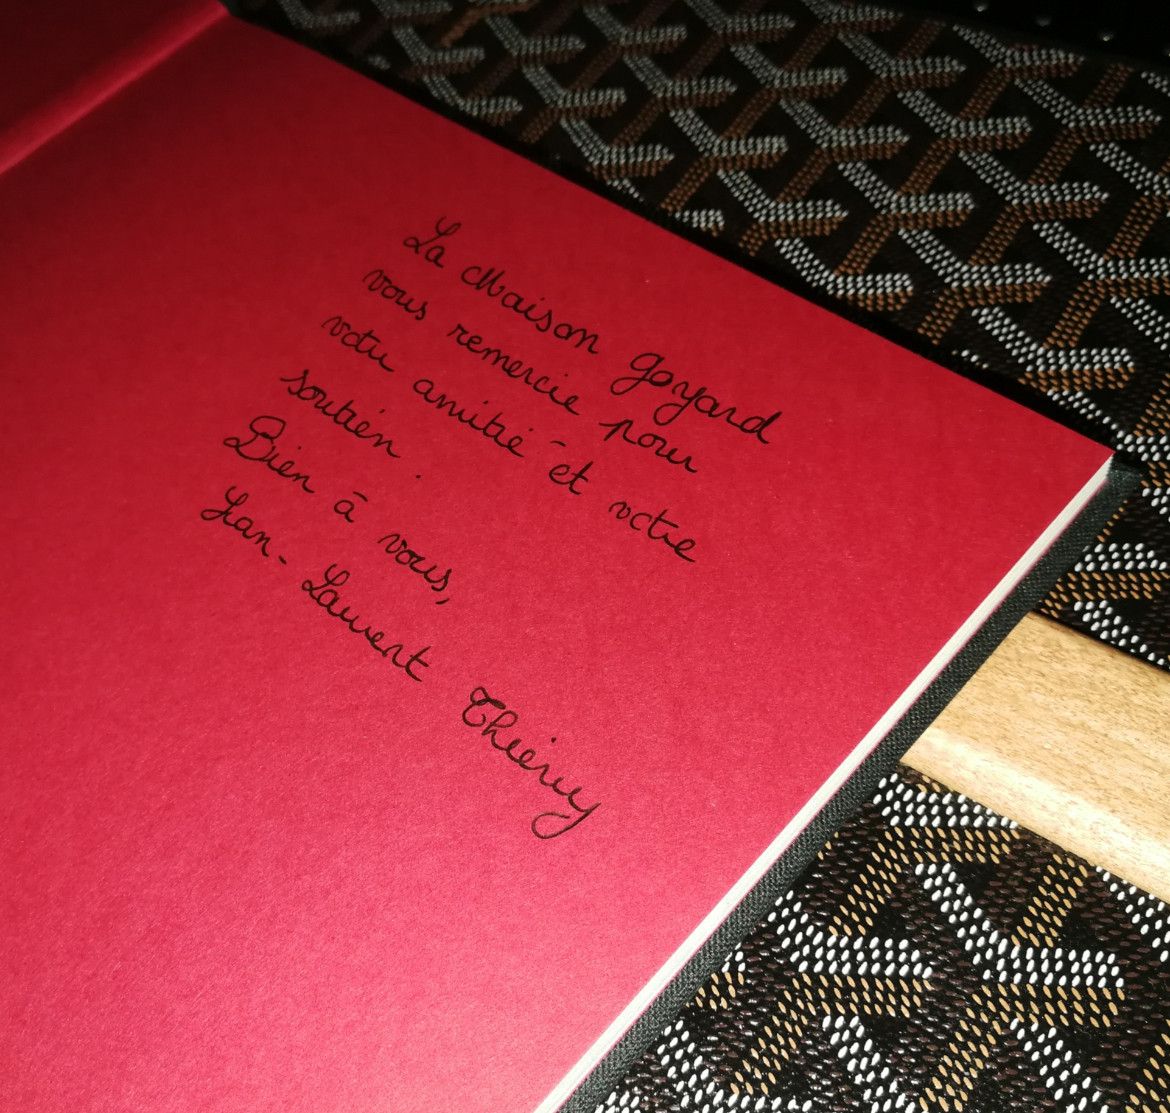 La Maison Goyard
vous remercie pour
votre amitié et votre
soutien.
Bien à vous,
Jean-Laurent Thiérry